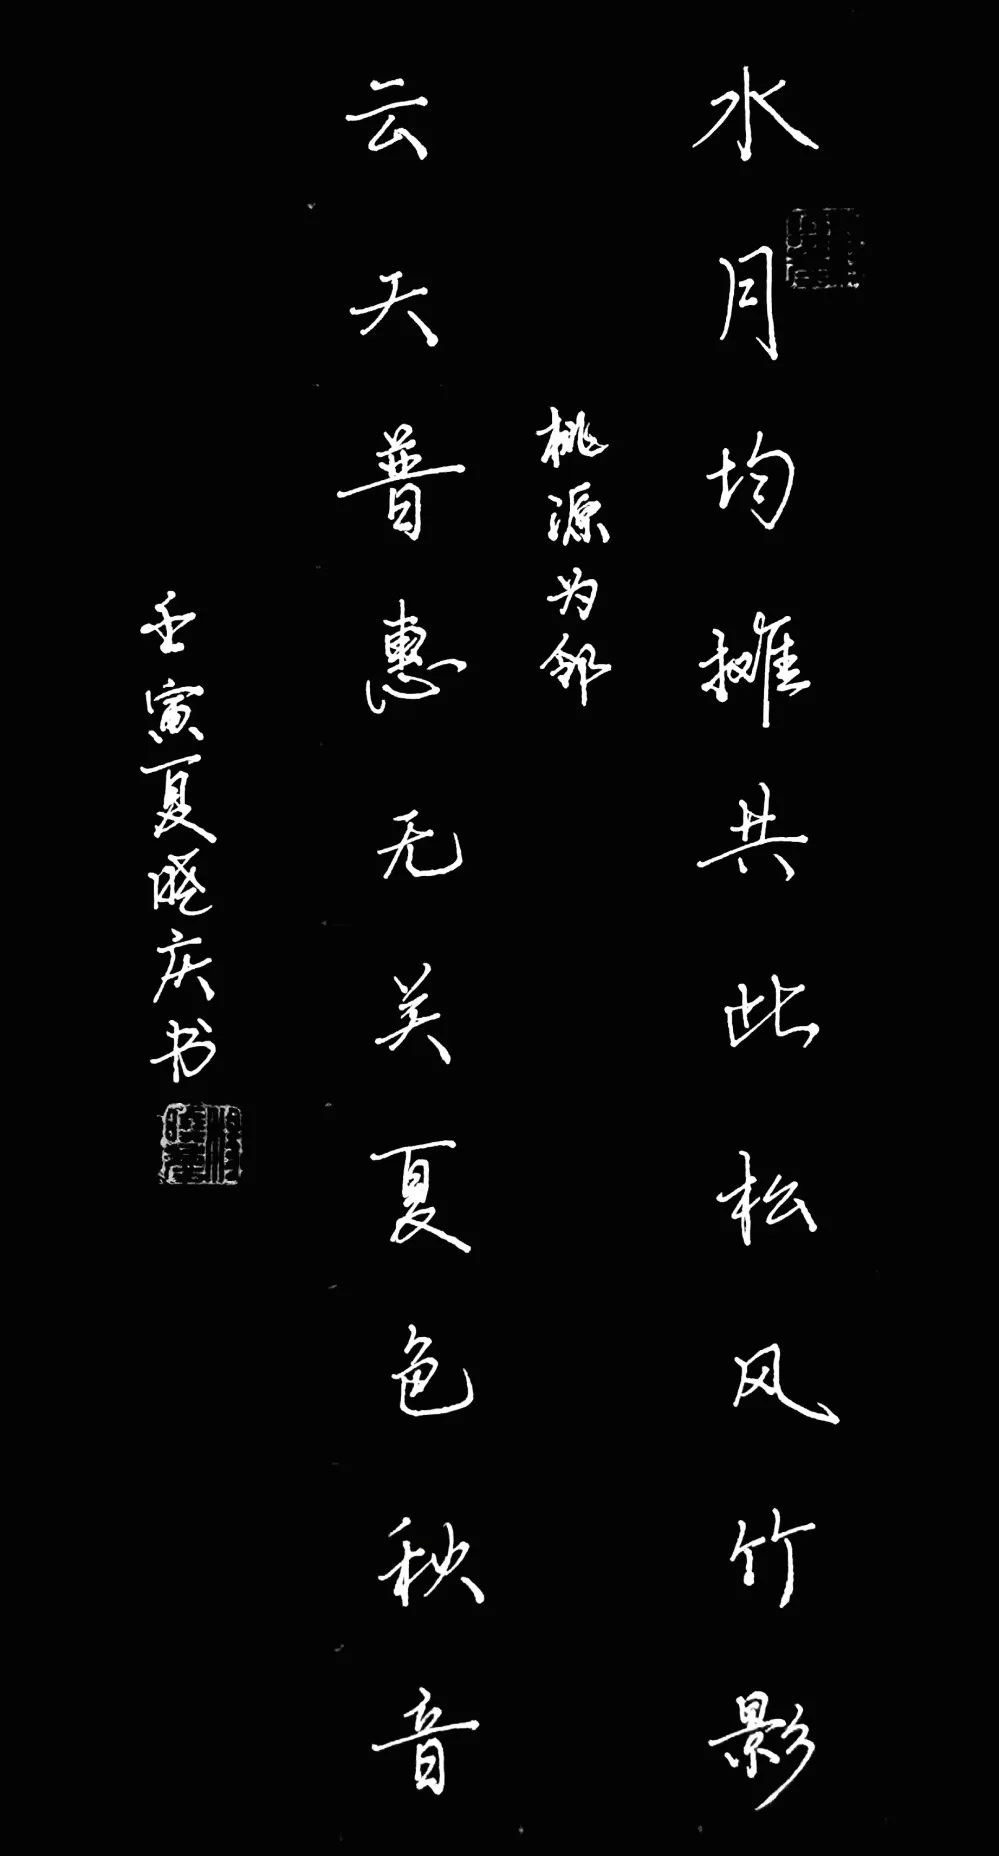 水月均摊共此松风竹影
桃源为邻
云天普惠无关夏色秋音
壬寅夏晓庆书